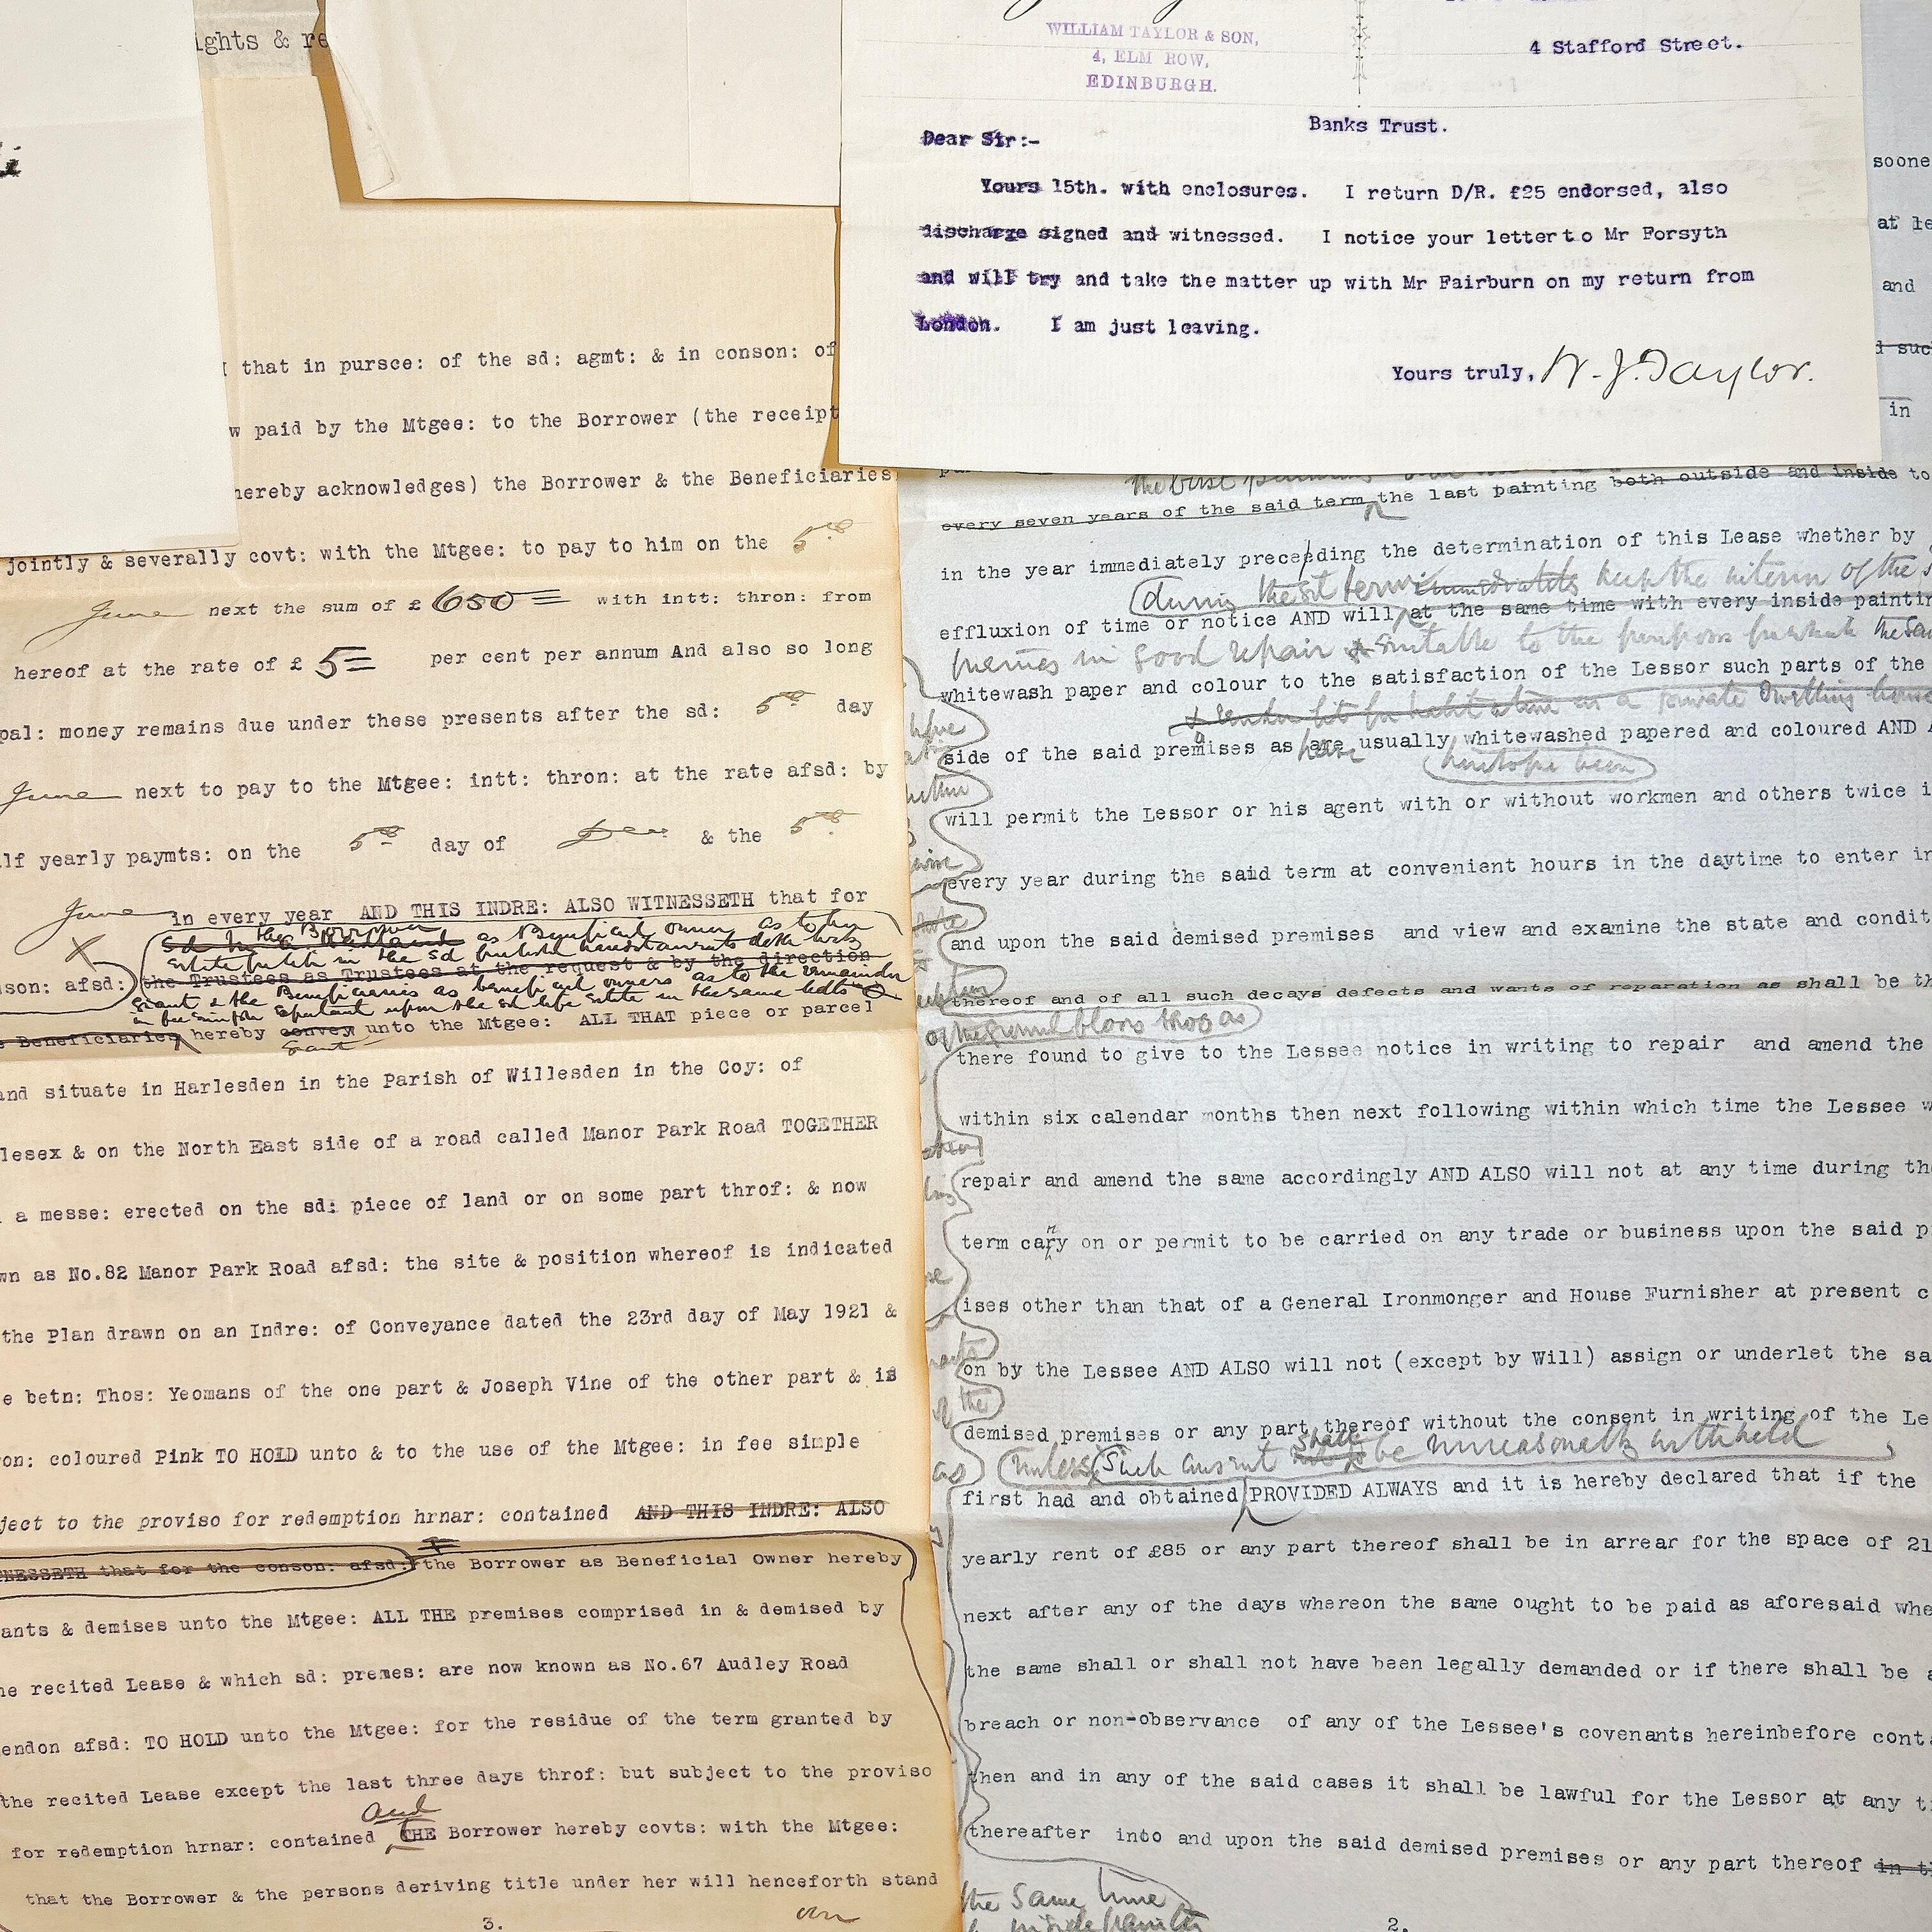 ights & re
WILLIAM TAYLOR & SON,
4, ELM ROW,
EDINBURGH.
4 Stafford Street.
Banks Trust.
Dear Sir:-
Yours 15th. with enclosures. I return D/R. £25 endorsed, also
discharge signed and witnessed. I notice your letter to Mr Forsyth
and will try and take the matter up with Mr Fairburn on my return from
London. I am just leaving.
Yours truly, W. J. Taylor.
that in pursce: of the sd: agmt: & in conson: of
w paid by the Mtgee: to the Borrower (the receipt
hereby acknowledges) the Borrower & the Beneficiaries
jointly & severally covt: with the Mtgee: to pay to him on the 5th
June next the sum of £ 650 with intt: thron: from
hereof at the rate of £ 5 per cent per annum And also so long
pal: money remains due under these presents after the sd: 5th day
June next to pay to the Mtgee: intt: thron: at the rate afsd: by
lf yearly paymts: on the 5th day of Dec & the 5th
June in every year AND THIS INDRE: ALSO WITNESSETH that for
the Borrower as Beneficial owner as to her
estate in the sd freehold
son: afsd: the Trustees as Trustees at the request & by the direction
grant & the Beneficiaries as beneficial owners as to the remainder
in fee simple expectant upon the sd life estate in the same
e Beneficiaries hereby convey unto the Mtgee: ALL THAT piece or parcel
grant
and situate in Harlesden in the Parish of Willesden in the Coy: of
lesex & on the North East side of a road called Manor Park Road TOGETHER
a messe: erected on the sd: piece of land or on some part throf: & now
wn as No.82 Manor Park Road afsd: the site & position whereof is indicated
the Plan drawn on an Indre: of Conveyance dated the 23rd day of May 1921 &
e betn: Thos: Yeomans of the one part & Joseph Vine of the other part & is
on: coloured Pink TO HOLD unto & to the use of the Mtgee: in fee simple
ject to the proviso for redemption hrnar: contained AND THIS INDRE: ALSO
TNESSETH that for the conson: afsd: the Borrower as Beneficial Owner hereby
ants & demises unto the Mtgee: ALL THE premises comprised in & demised by
he recited Lease & which sd: premes: are now known as No.67 Audley Road
endon afsd: TO HOLD unto the Mtgee: for the residue of the term granted by
the recited Lease except the last three days throf: but subject to the proviso
and
for redemption hrnar: contained THE Borrower hereby covts: with the Mtgee:
that the Borrower & the persons deriving title under her will henceforth stand
3.
soone
at le
and
d suc
in
every seven years of the said term the last painting both outside and inside to
in the year immediately preceding the determination of this Lease whether by
during the sd term immediately keep the interior of the s
effluxion of time or notice AND will at the same time with every inside paintin
premises in good repair & suitable to the purposes for which the sd
whitewash paper and colour to the satisfaction of the Lessor such parts of the
& render fit for habitation as a private dwelling house
side of the said premises as are usually whitewashed papered and coloured AND A
have
heretofore been
will permit the Lessor or his agent with or without workmen and others twice i
every year during the said term at convenient hours in the daytime to enter in
and upon the said demised premises and view and examine the state and condit
thereof and of all such decays defects and wants of reparation as shall be th
there found to give to the Lessee notice in writing to repair and amend the
within six calendar months then next following within which time the Lessee w
repair and amend the same accordingly AND ALSO will not at any time during the
term carry on or permit to be carried on any trade or business upon the said p
ises other than that of a General Ironmonger and House Furnisher at present c
on by the Lessee AND ALSO will not (except by Will) assign or underlet the sa
the
demised premises or any part thereof without the consent in writing of the Le
unless Such consent shall be unreasonably withheld
first had and obtained PROVIDED ALWAYS and it is hereby declared that if the
yearly rent of £85 or any part thereof shall be in arrear for the space of 21
next after any of the days whereon the same ought to be paid as aforesaid whe
the same shall or shall not have been legally demanded or if there shall be a
breach or non-observance of any of the Lessee's covenants hereinbefore conta
then and in any of the said cases it shall be lawful for the Lessor at any ti
thereafter into and upon the said demised premises or any part thereof in th
the same time
2.